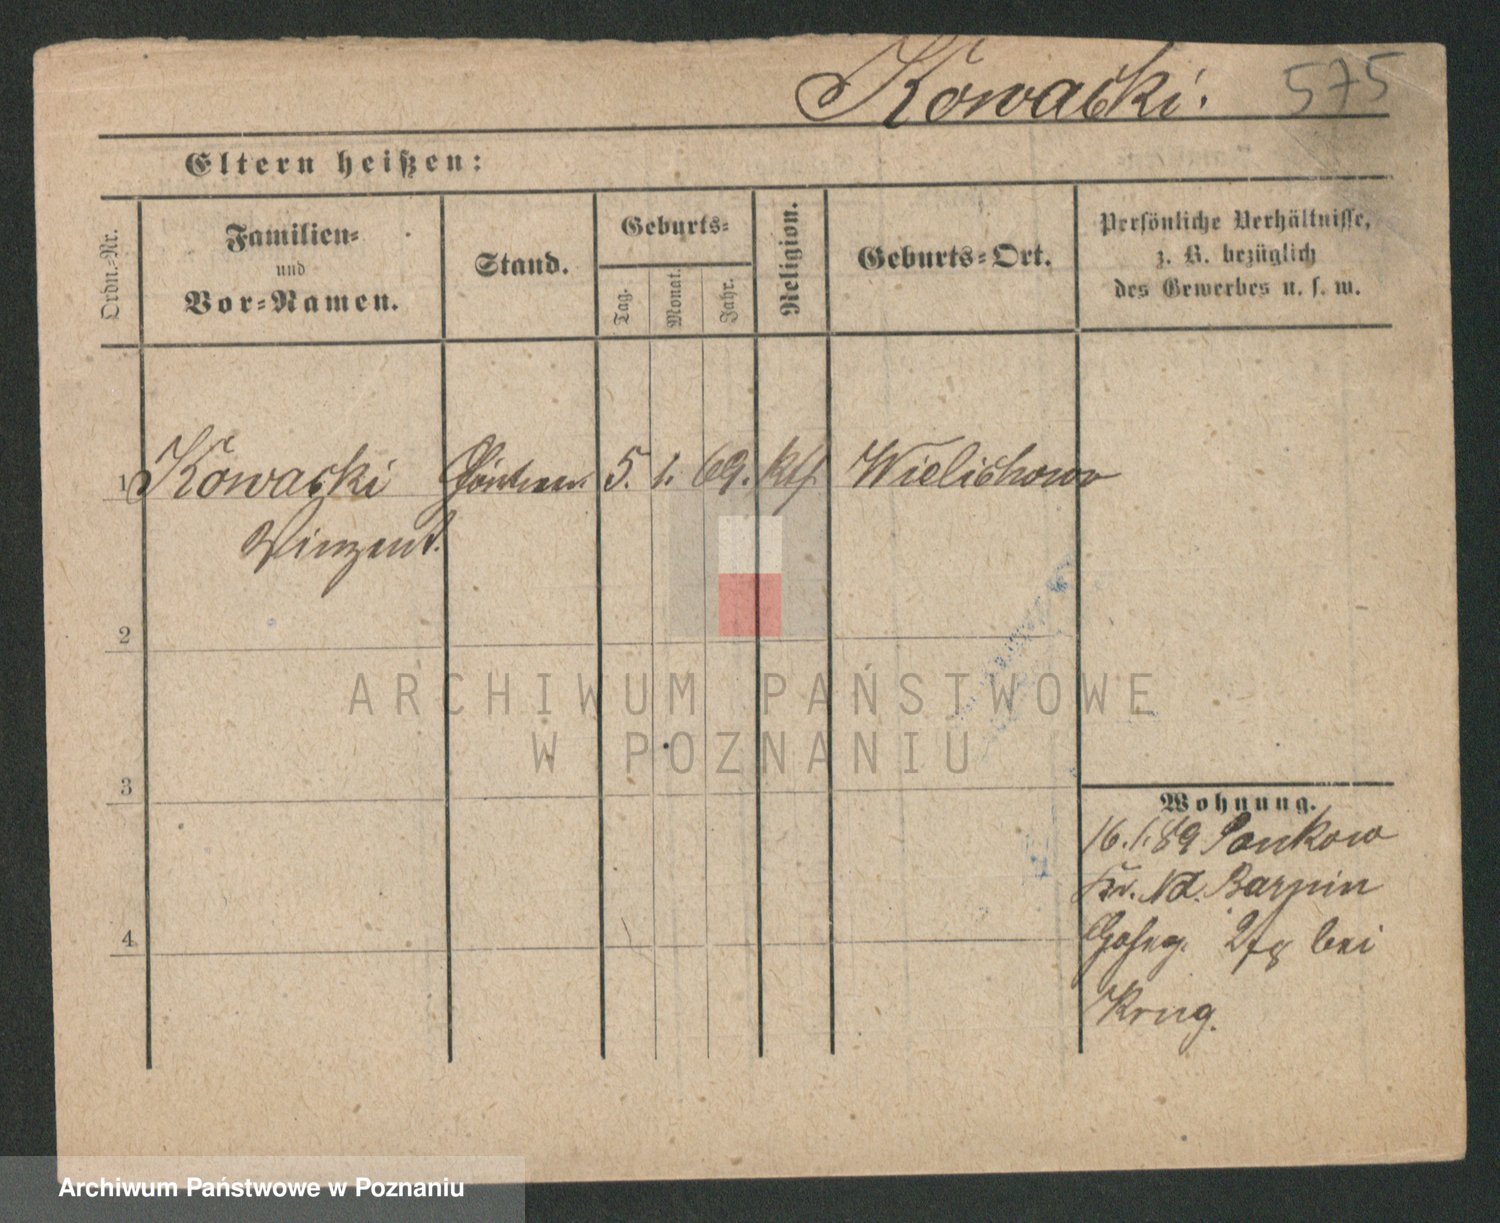 Kowacki. 575
Eltern heißen:
Ordn.-Nr.
Familien-
und
Vor-Namen.
Stand.
Geburts-
Tag.
Monat.
Jahr.
Religion.
Geburts-Ort.
Persönliche Verhältnisse,
z. B. bezüglich
des Gewerbes u. s. w.
1 Kowacki 5. 1. 69. kth Wielichowo
Vinzent.
2
3
4
ARCHIWUM PAŃSTWOWE
W POZNANIU
Wohnung.
16.1.89 Pankow
Kr. Nd. Barnim
bei
Krug.
Archiwum Państwowe w Poznaniu